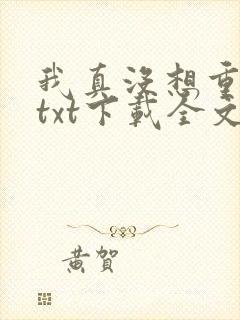 我真没想重
txt下载全文
黄贺